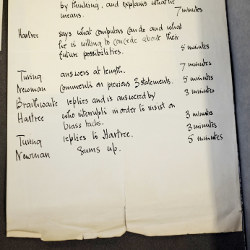 by thinking, and explains what it
means. 7 minutes
Hartree says what computers can do and what
he is willing to concede about their
future possibilities. 5 minutes
Turing answers at length. 7 minutes
Newman comments on previous statements. 5 minutes
Braithwaite replies and is answered by 3 minutes
Hartree who interrupts in order to insist on
brass tacks. 3 minutes
Turing replies to Hartree. 3 minutes
Newman Sums up. 5 minutes